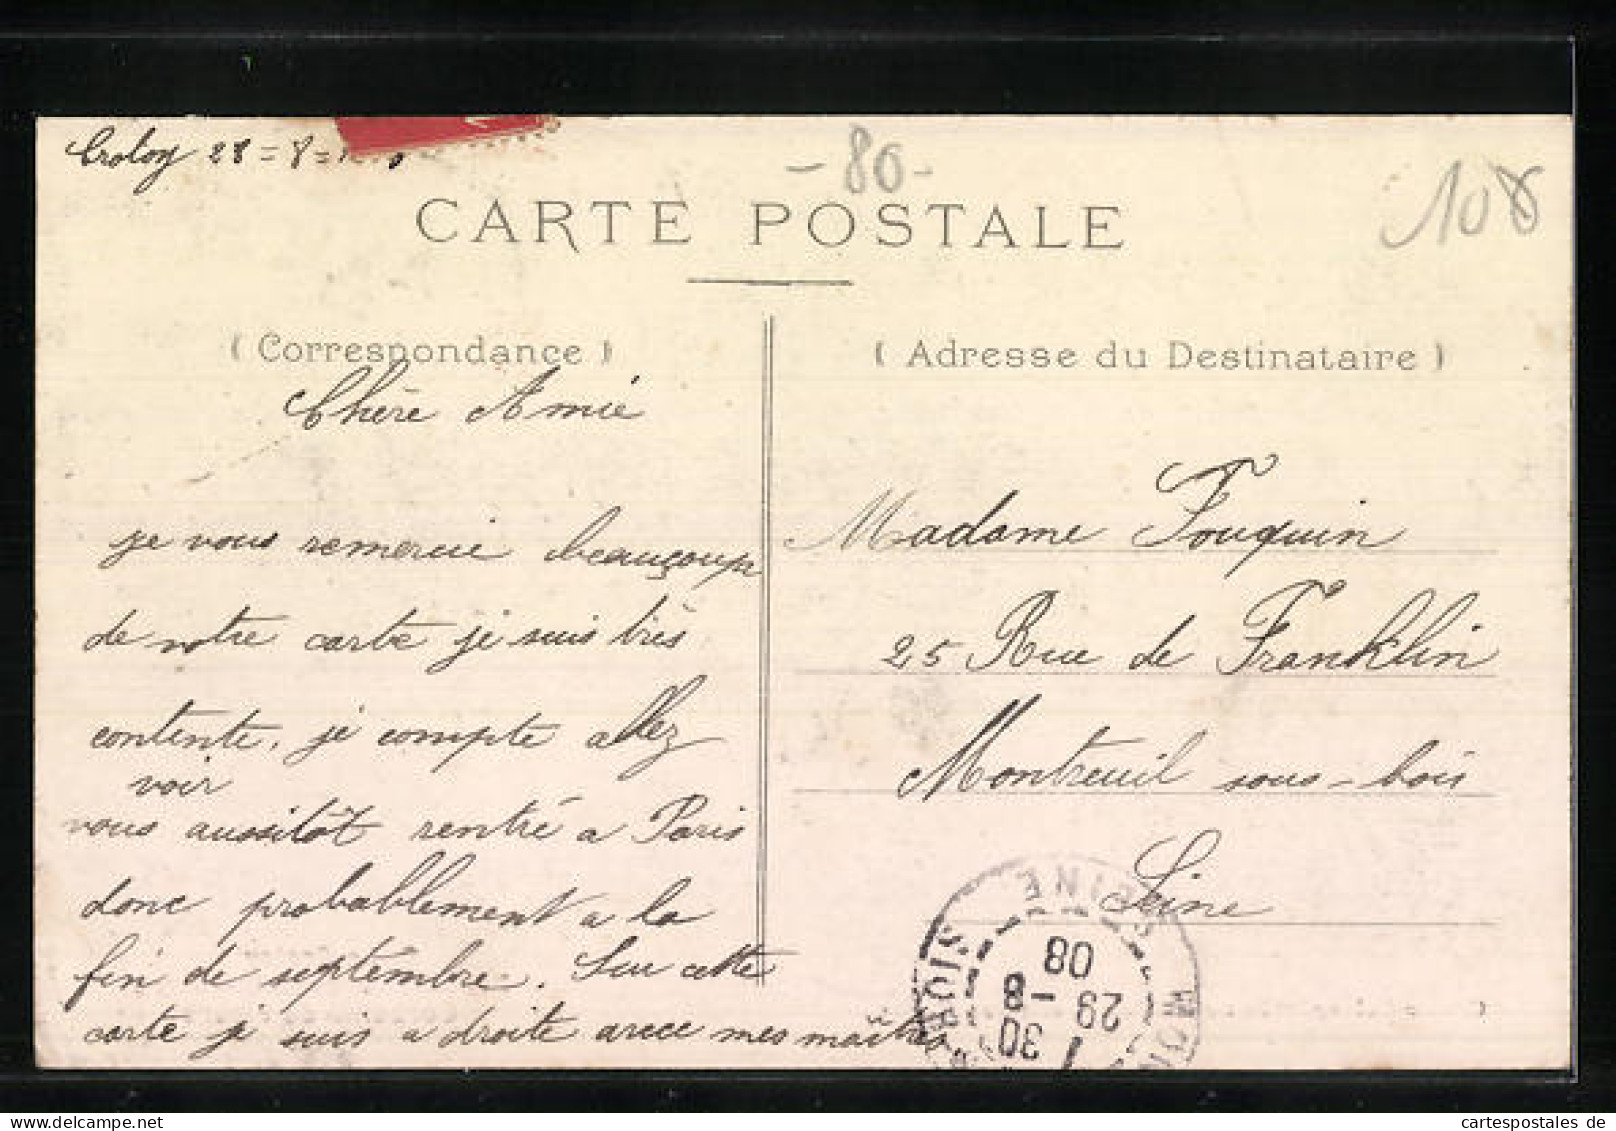 Crotoy 28 = 8 =
- 80 -
108
CARTE POSTALE
( Correspondance )
( Adresse du Destinataire )
Chère Amie
je vous remercie beaucoup
de votre carte je suis très
contente, je compte allez
voir
vous aussitôt rentré a Paris
donc probablement a la
fin de septembre. Sur cette
carte je suis a droite avec mes maîtres
Madame Fouquin
25 Rue de Franklin
Montreuil sous-bois
Seine
SEINE
08
29 -8
30
BOIS
cartespostales de